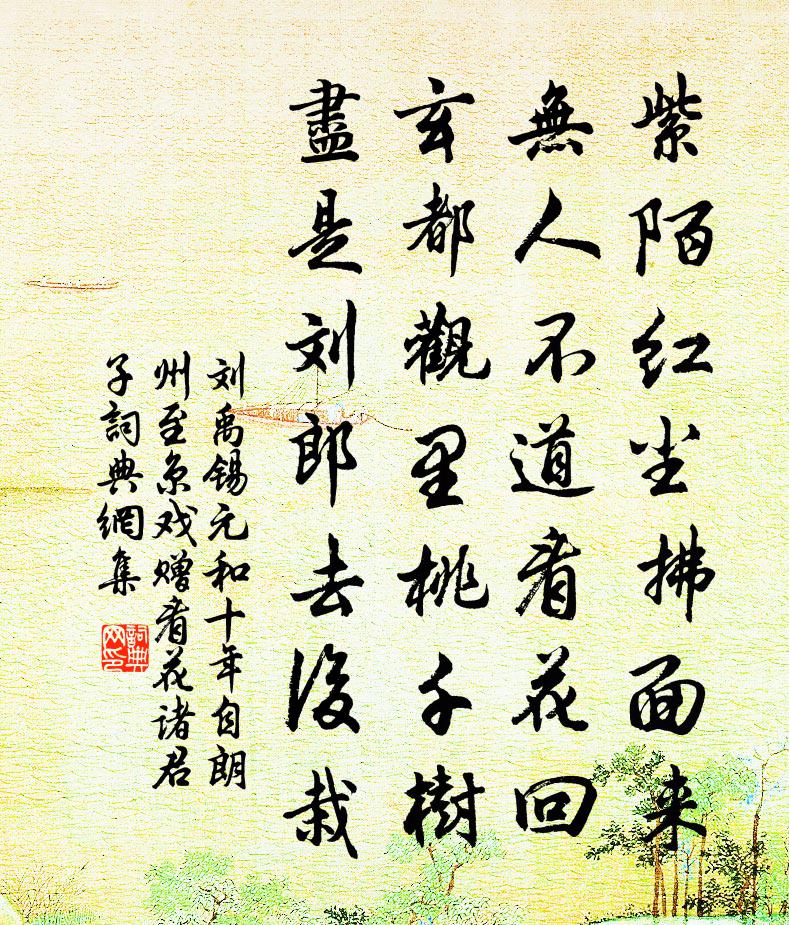 紫陌红尘拂面来
無人不道看花回
玄都觀里桃千樹
盡是刘郎去後栽
刘禹锡元和十年自朗
州至京戏赠看花诸君
子詞典網集
詞典网印